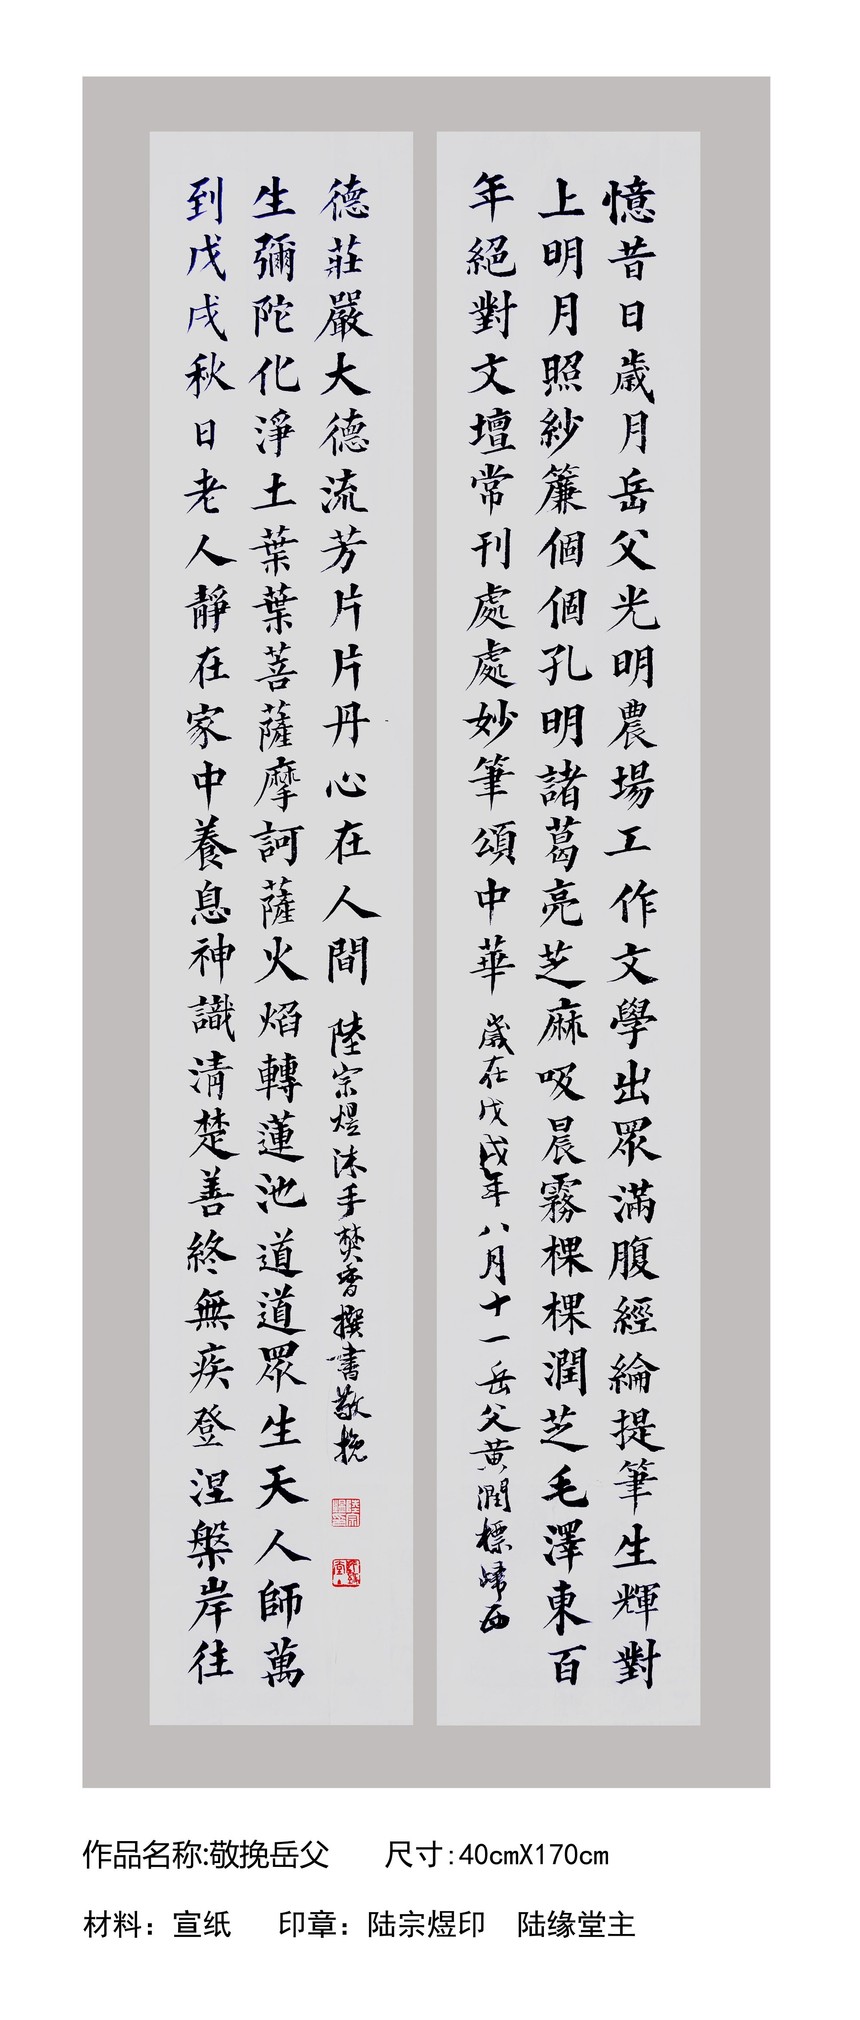 憶昔日歲月岳父光明農場工作文學出眾滿腹經綸提筆生輝對
上明月照紗簾個個孔明諸葛亮芝麻吸晨霧棵棵潤芝毛澤東百
年絕對文壇常刊處處妙筆頌中華 歲在戊戌年八月十一岳父黃潤標歸西
德莊嚴大德流芳片片丹心在人間 陸宗煜沐手焚香撰書敬挽
生彌陀化淨土葉葉菩薩摩訶薩火焰轉蓮池道道眾生天人師萬
到戊戌秋日老人靜在家中養息神識清楚善終無疾登涅槃岸往
作品名称:敬挽岳父 尺寸:40cmX170cm
材料：宣纸 印章：陆宗煜印 陆缘堂主